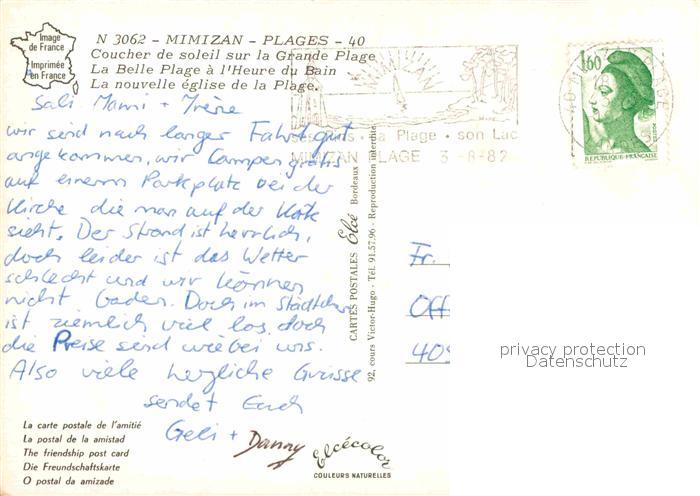 Image
de France
Imprimée
en France
N 3062 - MIMIZAN - PLAGES - 40
Coucher de soleil sur la Grande Plage
La Belle Plage à l'Heure du Bain
La nouvelle église de la Plage.
MIMIZAN
sa Plage • son Lac
MIMIZAN PLAGE 3 -8-82
40 MIMIZAN PLAGE
1,60
REPUBLIQUE FRANÇAISE
Sali Mami + Irène
wir sind nach langer Fahrt gut
angekommen, wir Campen gratis
auf einem Parkplatz bei der
Kirche die man auf der Karte
sieht. Der Strand ist herrlich,
doch leider ist das Wetter
schlecht und wir können
nicht baden. Doch im Städtchen
ist ziemlich viel los, doch
die Preise sind wie bei uns.
Also viele herzliche Grüsse
sendet Euch
Geli + Danny
CARTES POSTALES Elcé Bordeaux
92, cours Victor-Hugo - Tél. 91.57.96 - Reproduction interdite
Fr.
Off
409
privacy protection
Datenschutz
La carte postale de l'amitié
La postal de la amistad
The friendship post card
Die Freundschaftskarte
O postal da amizade
Elcécolor
COULEURS NATURELLES